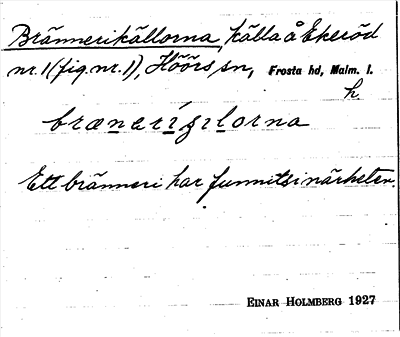 Brännerikällorna, källa å Ekeröd
nr. 1 (fig. nr. 1), Höörs sn, Frosta hd, Malm. l.
h.
brænerís̨ılorna
Ett bränneri har funnits i närheten.
EINAR HOLMBERG 1927